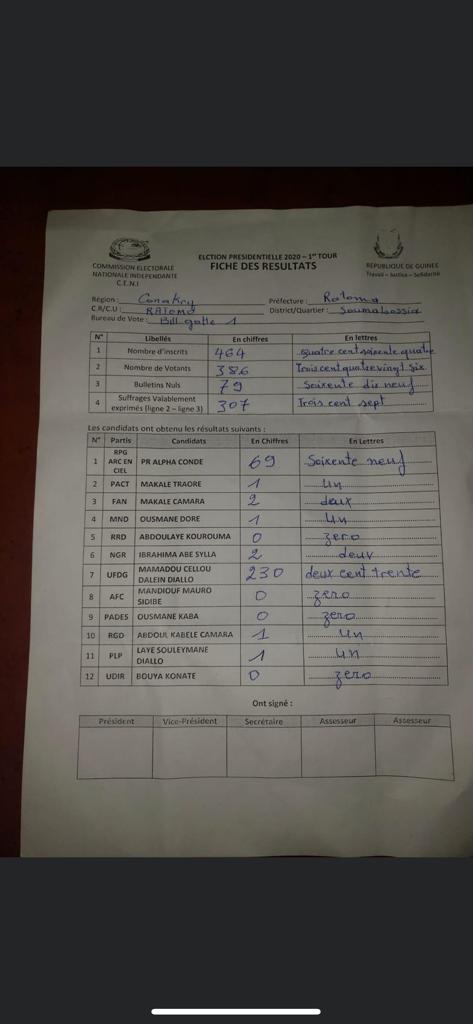 COMMISSION ELECTORALE
NATIONALE INDEPENDANTE
C.E.N.I
ELCTION PRESIDENTIELLE 2020 – 1er TOUR
FICHE DES RESULTATS
REPUBLIQUE DE GUINEE
Travail – Justice – Solidarité
Région : Conakry Préfecture : Ratoma
C.R/C.U : RATOMA District/Quartier :
Bureau de Vote : Bill gatte 1
N° Libellés En chiffres En lettres
1 Nombre d'inscrits 464 quatre cent soixente quatre
2 Nombre de Votants 386 Trois cent quatre vingt six
3 Bulletins Nuls 79 Soixente dix neuf
4 Suffrages Valablement exprimés (ligne 2 – ligne 3) 307 Trois cent sept
Les candidats ont obtenu les résultats suivants :
N° Partis Candidats En Chiffres En Lettres
1 RPG ARC EN CIEL PR ALPHA CONDE 69 Soixente neuf
2 PACT MAKALE TRAORE 1 un
3 FAN MAKALE CAMARA 2 deux
4 MND OUSMANE DORE 1 Un
5 RRD ABDOULAYE KOUROUMA 0 zero
6 NGR IBRAHIMA ABE SYLLA 2 deux
7 UFDG MAMADOU CELLOU DALEIN DIALLO 230 deux cent trente
8 AFC MANDIOUF MAURO SIDIBE 0 zero
9 PADES OUSMANE KABA 0 zero
10 RGD ABDOUL KABELE CAMARA 1 un
11 PLP LAYE SOULEYMANE DIALLO 1 un
12 UDIR BOUYA KONATE 0 zero
Ont signé :
Président Vice-Président Secrétaire Assesseur Assesseur